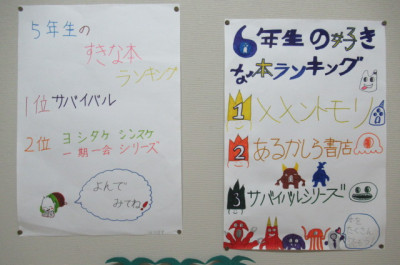 5年生の
すきな本
ランキング
1位 サバイバル
2位 ヨシタケ シンスケ
一期一会 シリーズ
よんで
みてね!
6年生の好き
な本ランキング
1 メメントモリ
2 あるかしら書店
3 サバイバルシリーズ
本を
たくさん